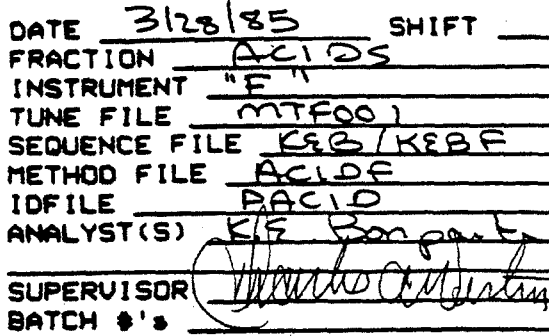 DATE 3/28/85 SHIFT
FRACTION ACIDS
INSTRUMENT "F"
TUNE FILE MTF001
SEQUENCE FILE KEB/KEBF
METHOD FILE ACIDF
IDFILE PACID
ANALYST(S) KE
SUPERVISOR
BATCH #'s